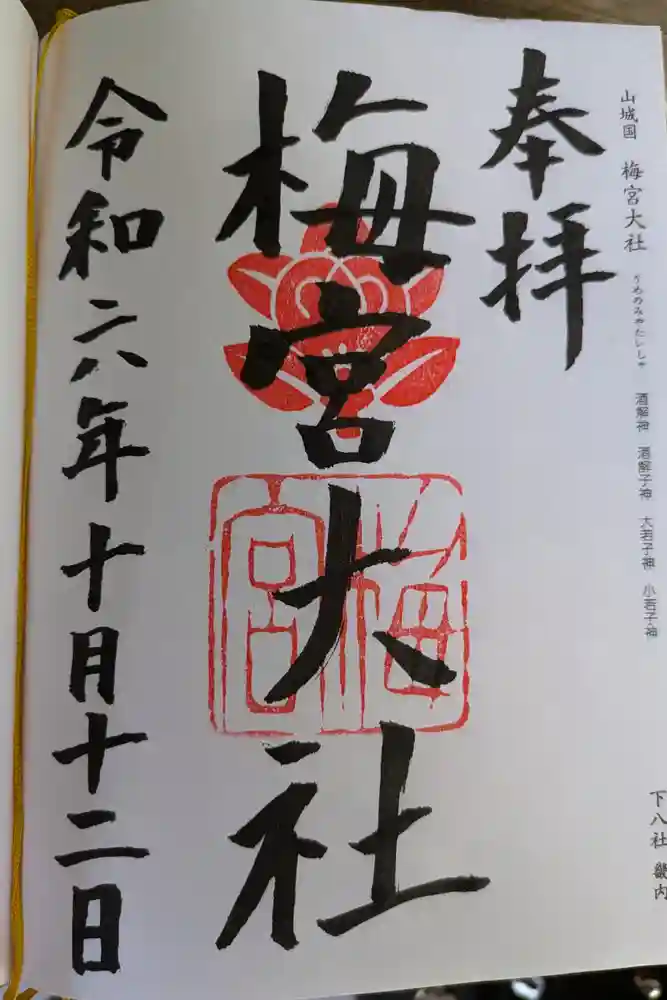 山城国 梅宮大社 うめのみやたいしゃ 酒解神 酒解子神 大若子神 小若子神
下八社 畿内
奉拝
梅宮大社
梅
宮
令和六年十月十二日